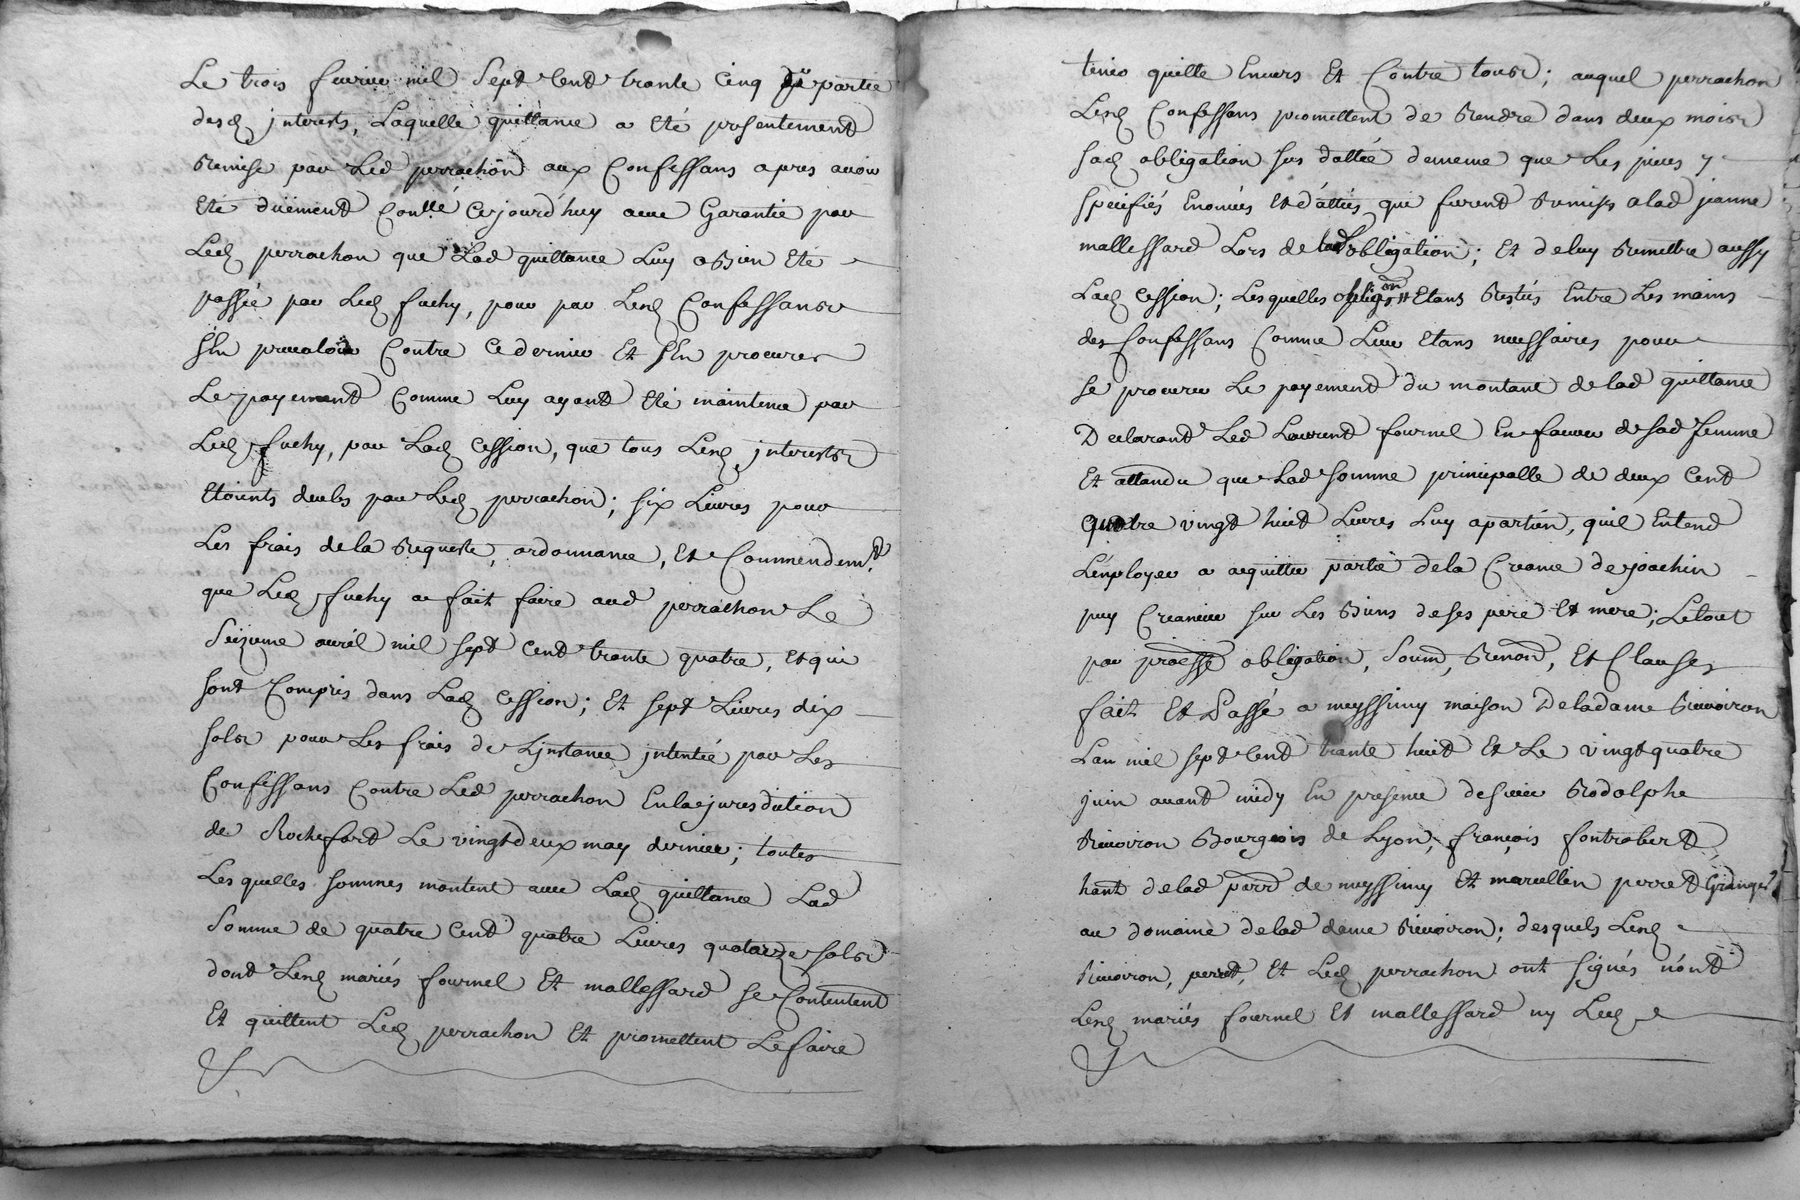 Le trois fevrier mil sept cent trante cinq en partie
desq interests, Laquelle quittance a eté presentement
Remise par Led perrachon aux Confessans apres avoir
eté düement Conllé cejourd'huy avec Garantie par
Led perrachon que Lad quittance Luy a Bien eté
passée par Led fuchy, pour par Lesd Confessans
s'En prevaloir Contre ce dernier Et s'En procurer
Le payement Comme Luy ayant eté maintenu par
Led fuchy, par Lad Cession, que tous Lesd interests
etoients deubs par Led perrachon; six Livres pour
Les frais de la Requeste, ordonnance, Et Commendemt
que Led fuchy a fait faire aud perrachon Le
Seizieme avril mil sept Cent trante quatre, et qui
sont Compris dans Lad Cession; Et sept Livres dix
sols pour Les frais de L'jnstance jntentée par Les
Confessans Contre Led perrachon En la jurisdiction
de Rochefort Le vingt deux may dernier; toutes
Lesquelles sommes montent avec Lad quittance Lad
Somme de quatre Cent quatre Livres quatorze sols
dont Lesd mariés fournel Et mallessard se Contentent
Et quittent Led perrachon Et promettent Le faire
tenir quitte Envers Et Contre tous; auquel perrachon
Lesd Confessans promettent de Rendre dans deux mois
Lad obligation sus dattée dememe que Les pieces y
specifiés Enoncés Et dattés qui furent Remises a lad jeanne
mallessard Lors de lad obligation; Et de luy Remettre aussy
Lad Cession; Lesquelles Etans Restés Entre Les mains
des Confessans Comme Leur Etans necessaires pour
se procurer Le payement du montant de lad quittance
Declarant Led Laurent fournel En faveur de sad femme
Et attandu que Lad somme principalle de deux Cent
quatre vingt huit Livres Luy apartien, quil Entend
L'employer a acquitter partie de la Creance de joachin
puy Creancier sur Les Biens de ses pere Et mere; Le tout
par obligation, Soumd, Renond, Et Clauses
fait Et Passé a meyssimy maison De la dame Rivoiron
L'an mil sept Cent trante huit Et Le vingt quatre
juin avant midy En presence de sieur Rodolphe
Rivoiron Bourgeois de Lyon, françois fontrobert
hant de lad parrd de meyssimy Et marcellin perret Granger
au domaine de lad dame Rivoiron; desquels Lesd
Rivoiron, perret, Et Led perrachon ont signés nont
Lesd mariés fournel Et mallessard ny Led